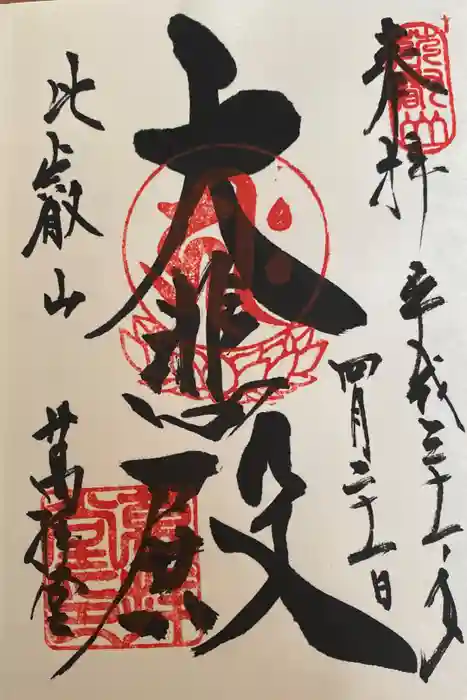 奉拝
平成三十一年
四月二十一日
大悲殿
比叡山
萬拝堂